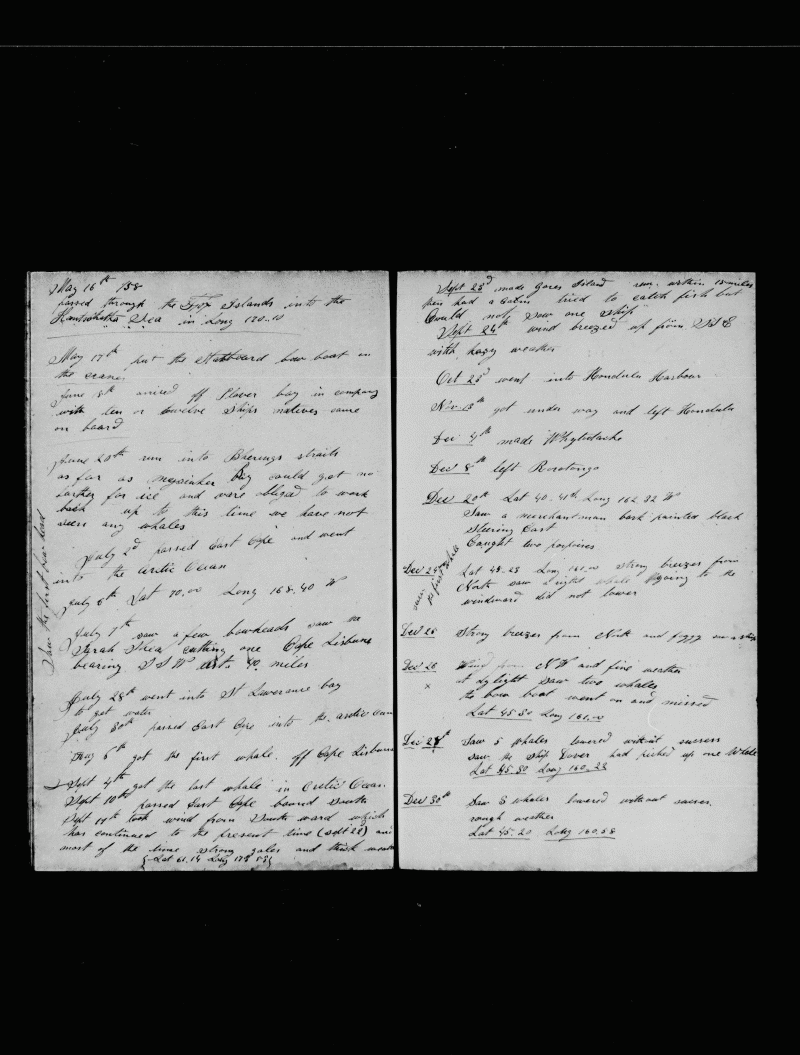 May 16th 158
passed through the Fox Islands into the
Kamschatka Sea in Long 170..10
May 17th put the Starboard bow boat on
the cranes
June 8th arived off Plover bay in company
with ten or twelve Ships natives came
on board
June 20th run into Bherings straits
as far as Bay could get no
farther for ice and were obliged to work
back up to this time we have not
seen any whales
July 2d passed East Cape and went
into the Arctic Ocean
July 6th Lat 70.00 Long 168.40 W
Saw the first bow head
July 7th saw a few bowheads saw the
Sarah Shea cutting one Cape Lisburn
bearing S S W dist. 40 miles
July 28th went into St Lawrance bay
to get water
July 30th passed East Cape into the arctic
Aug 6th got the first whale off Cape Lisburn
Sept 4th got the last whale in Arctic Ocean
Sept 10th passed East Cape bound South
Sept 14th took wind from South ward which
has continued to the present time (sept 22) and
most of the time strong gales and thick
{Lat 61.14 Long 178 58}
Sept 23d made Gores Island run within 15 miles
then had a calm tried to catch fish but
Could not saw one ship
Sept 24th wind breezed up from S S E
with hazy weather
Oct 25d went into Honolulu Harbour
Nov. 13th got under way and left Honolulu
Dec 4th made Whytutacke
Dec 8th left Rorotonga
Dec 20th Lat 40.41th Long 162.32 W
Saw a merchantman bark painted black
Steering East
Caught two porpoises
saw the first whale
Dec 24th Lat 48.28 Long 161.00 Strong breezes from
North saw a right whale going to the
windward did not lower
Dec 25 Strong breezes from North and foggy
Dec 26 Wind from N W and fine weather
x at dylight saw two whales
the bow boat went on and missed
Lat 45.50 Long 161.00
Dec 28th Saw 5 whales lowered without success
saw the Ship Dover had picked up one Whale
Lat 45.30 Long 160.23
Dec 30th Saw 3 whales lowered without sucess.
rough weather
Lat 45.20 Long 160.58